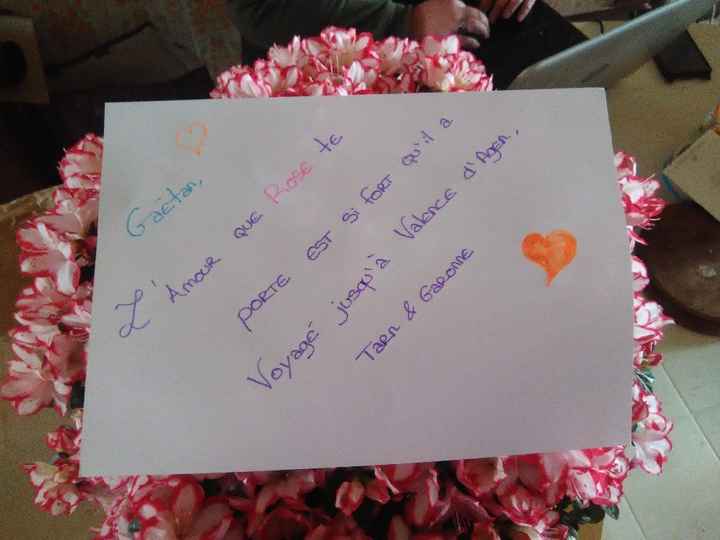 Gaëtan,
L'Amour que Rose te
porte est si fort qu'il a
Voyagé jusqu'à Valence d'Agen,
Tarn & Garonne